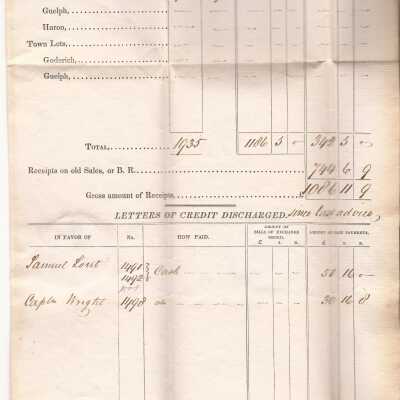 Guelph,
Huron,
Town Lots,
Goderich,
Guelph,
TOTAL, 1935 1186 5 342 5
Receipts on old Sales, or B. R. 744 6 9
Gross amount of Receipts, £1086 11 9
LETTERS OF CREDIT DISCHARGED, since last advice,
IN FAVOR OF No. HOW PAID. AMOUNT OF BILLS OF EXCHANGE ISSUED. AMOUNT OF CASH PAYMENTS.
£ s. D. £ s. D.
Samuel 1491 Cash 50 16
1492
Captn Wright 1498 do 30 16 8